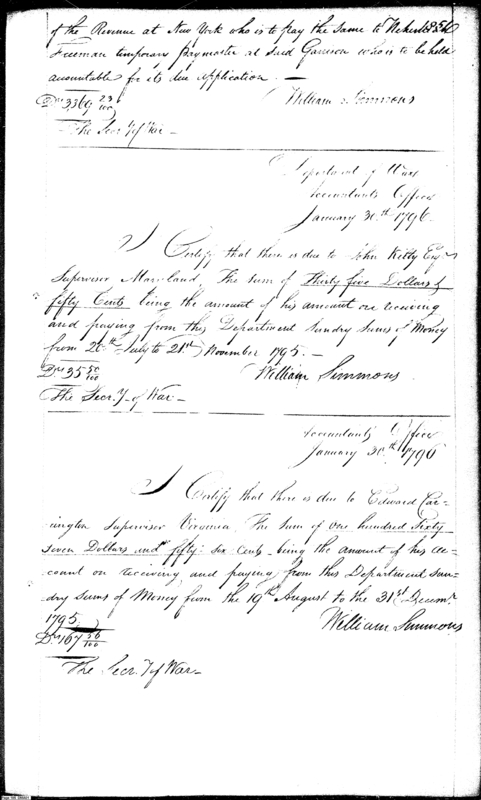 of the Revenue at New York who is to pay the Same to
Freeman temporary paymaster at said Garrison who is to be held
accountable for its due application. —
William Simmons
Drs 3369 23/100
The Secry of War —
Department of War
Accountants Office
January 30th 1796.
I Certify that there is due to John Kilty Esqr
Supervisor Maryland The sum of Thirty five Dollars &
fifty Cents being the amount of his amount on receiving
and paying from this Department Sundry Sums of Money
from 20th July to 21st November 1795. —
William Simmons
Drs 35 50/100
The Secry of War —
Accountants Office
January 30th 1796
I Certify that there is due to Edward Car-
rington Supervisor Virginia The Sum of one hundred Sixty
Seven Dollars and fifty six Cents being the amount of his ac-
count on receiving and paying from this Department sun-
dry Sums of Money from the 19th August to the 31st Decemr
1795.
William Simmons
Drs 167 56/100
The Secry of War —